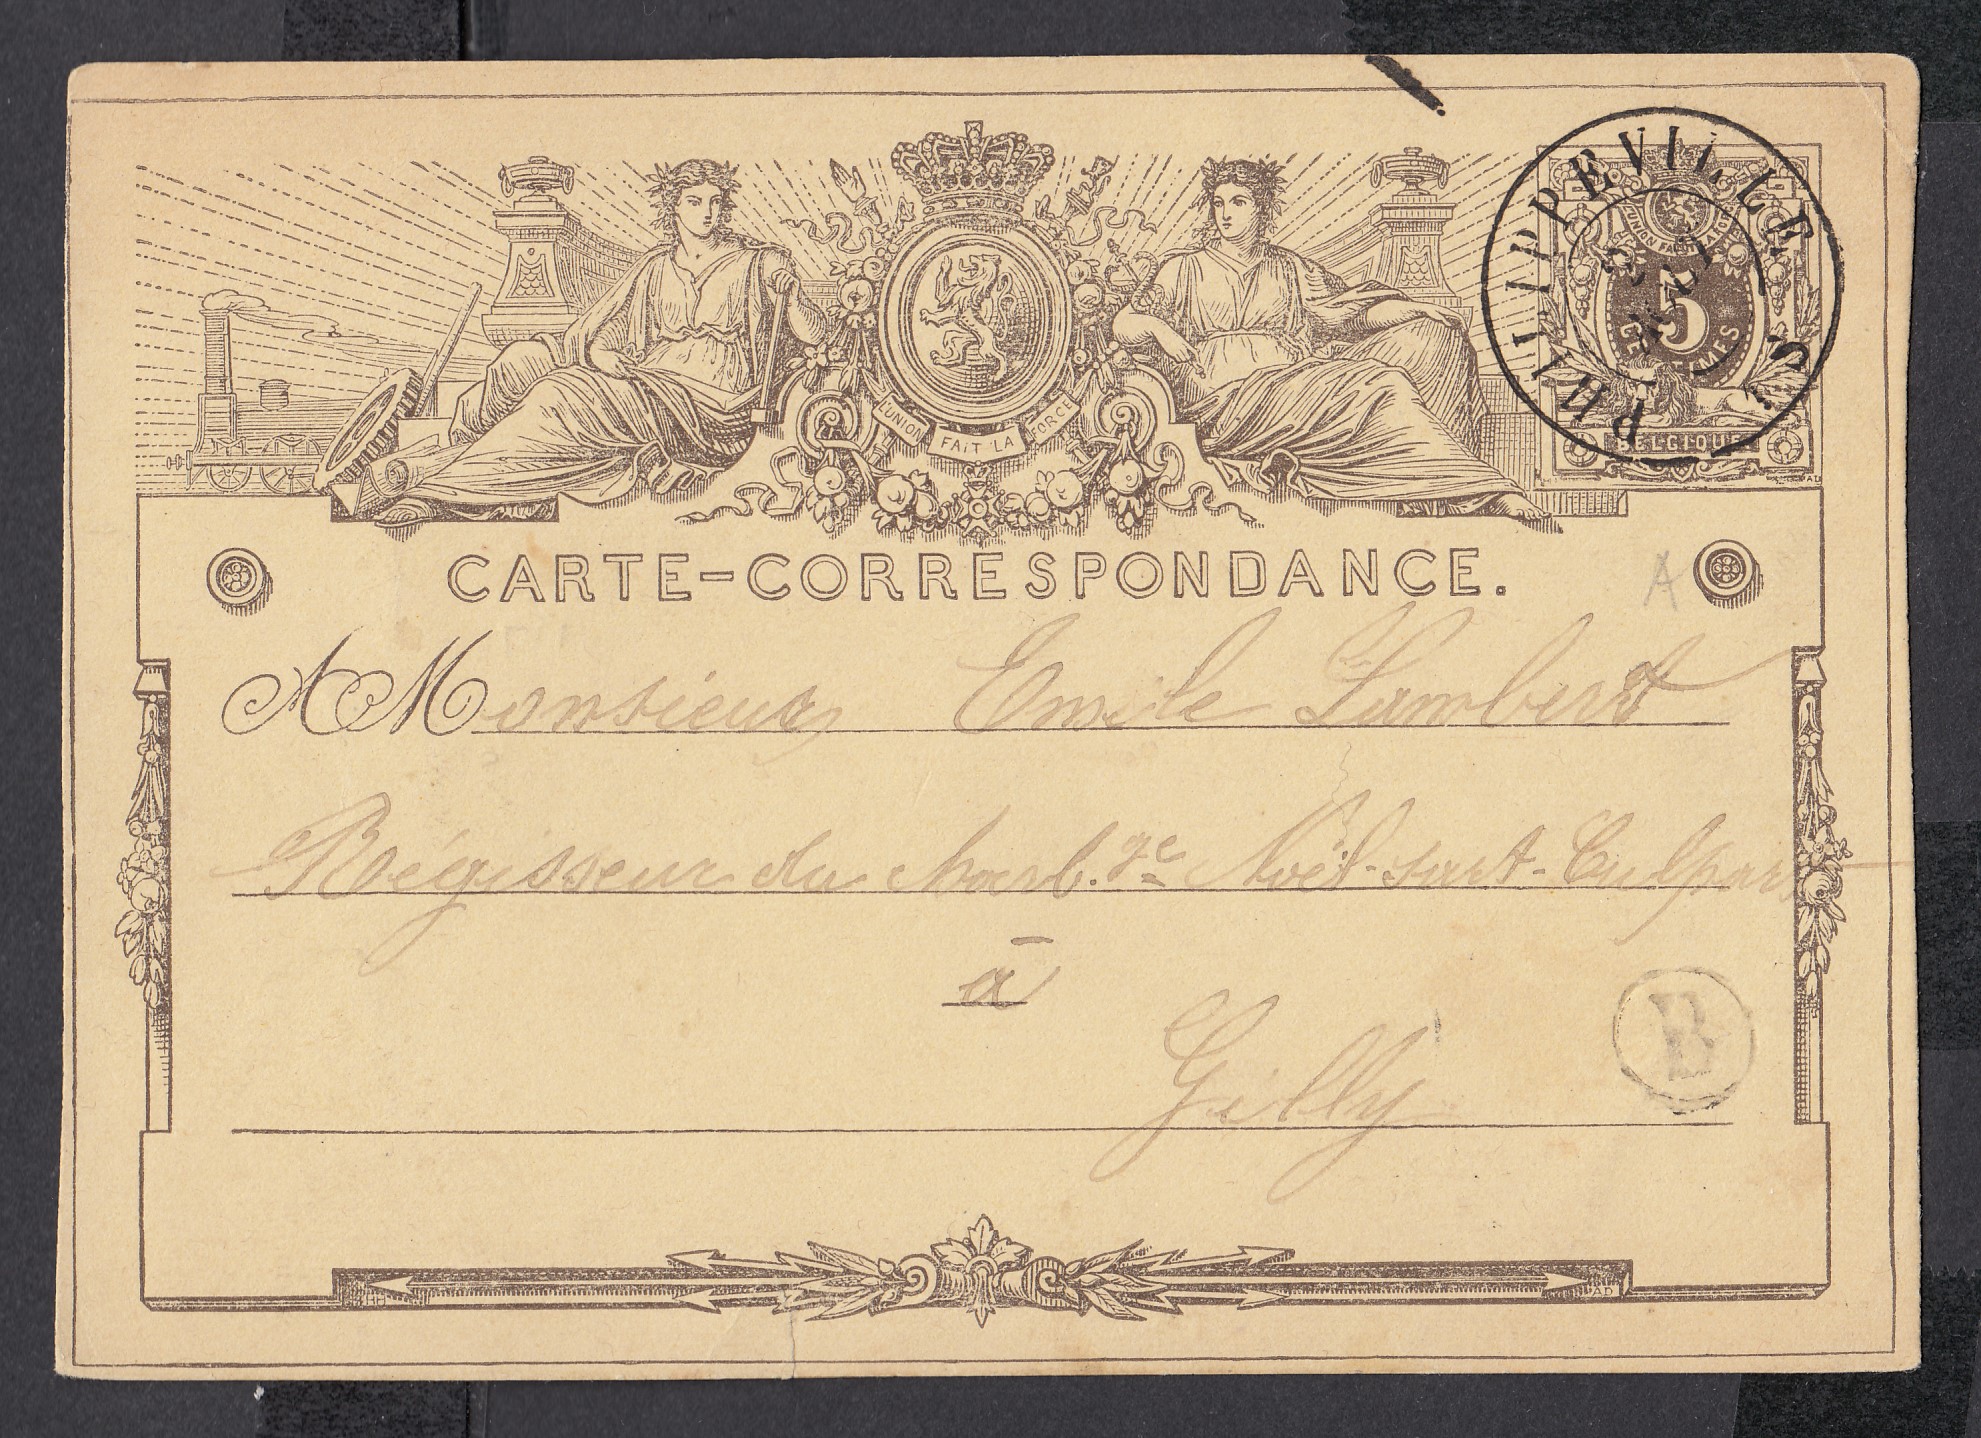 PHILIPPEVILLE
L'UNION FAIT LA FORCE
5
CENTIMES
BELGIQUE
L'UNION FAIT LA FORCE
CARTE-CORRESPONDANCE.
A
A Monsieur Emile Lambert
Régisseur du Charb.ge Noël-Sart-Culpart
à
Gilly
B
HH
AD